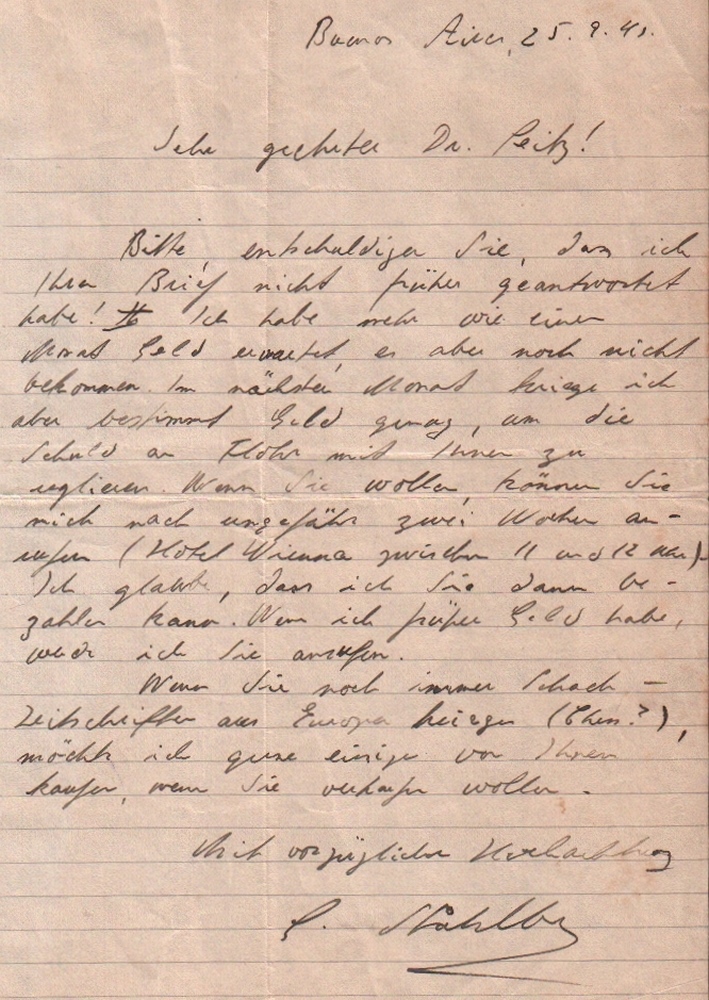 Buenos Aires, 25. 9. 41.
Sehr geehrter Dr. Seitz!
Bitte, entschuldigen Sie, dass ich
Ihren Brief nicht früher geantwortet
habe! Ich habe mehr wie einen
Monat Geld erwartet, es aber noch nicht
bekommen. Im nächsten Monat kriege ich
aber bestimmt Geld genug, um die
Schuld an Flohr mit Ihnen zu
reglieren. Wenn Sie wollen, können Sie
mich nach ungefähr zwei Wochen an-
rufen (Hotel Wienna zwischen 11 und 12 Uhr).
Ich glaube, dass ich Sie dann be-
zahlen kann. Wenn ich früher Geld habe,
werde ich Sie anrufen.
Wenn Sie noch immer Schach-
Zeitschriften aus Europa kriegen (Chess?),
möchte ich gerne einige von Ihnen
kaufen, wenn Sie verkaufen wollen.
Mit vorzüglicher Hochachtung
G. Ståhlberg